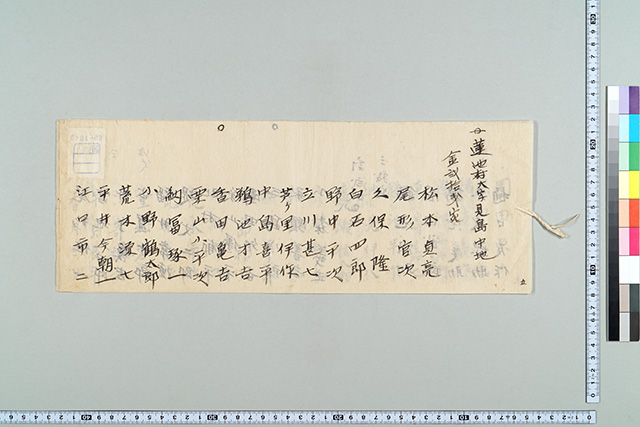 蓮池村大字見島中地
金弐拾弐銭
松本貞亮
尾形官次
久保隆
白石四郎
野中平次
立川甚七
芦ヶ里伊作
中島喜平
鵜池才吉
香田亀吉
栗山八平次
納冨琢一
小野鶴太郎
荒木波七
平井今朝一
江口市二